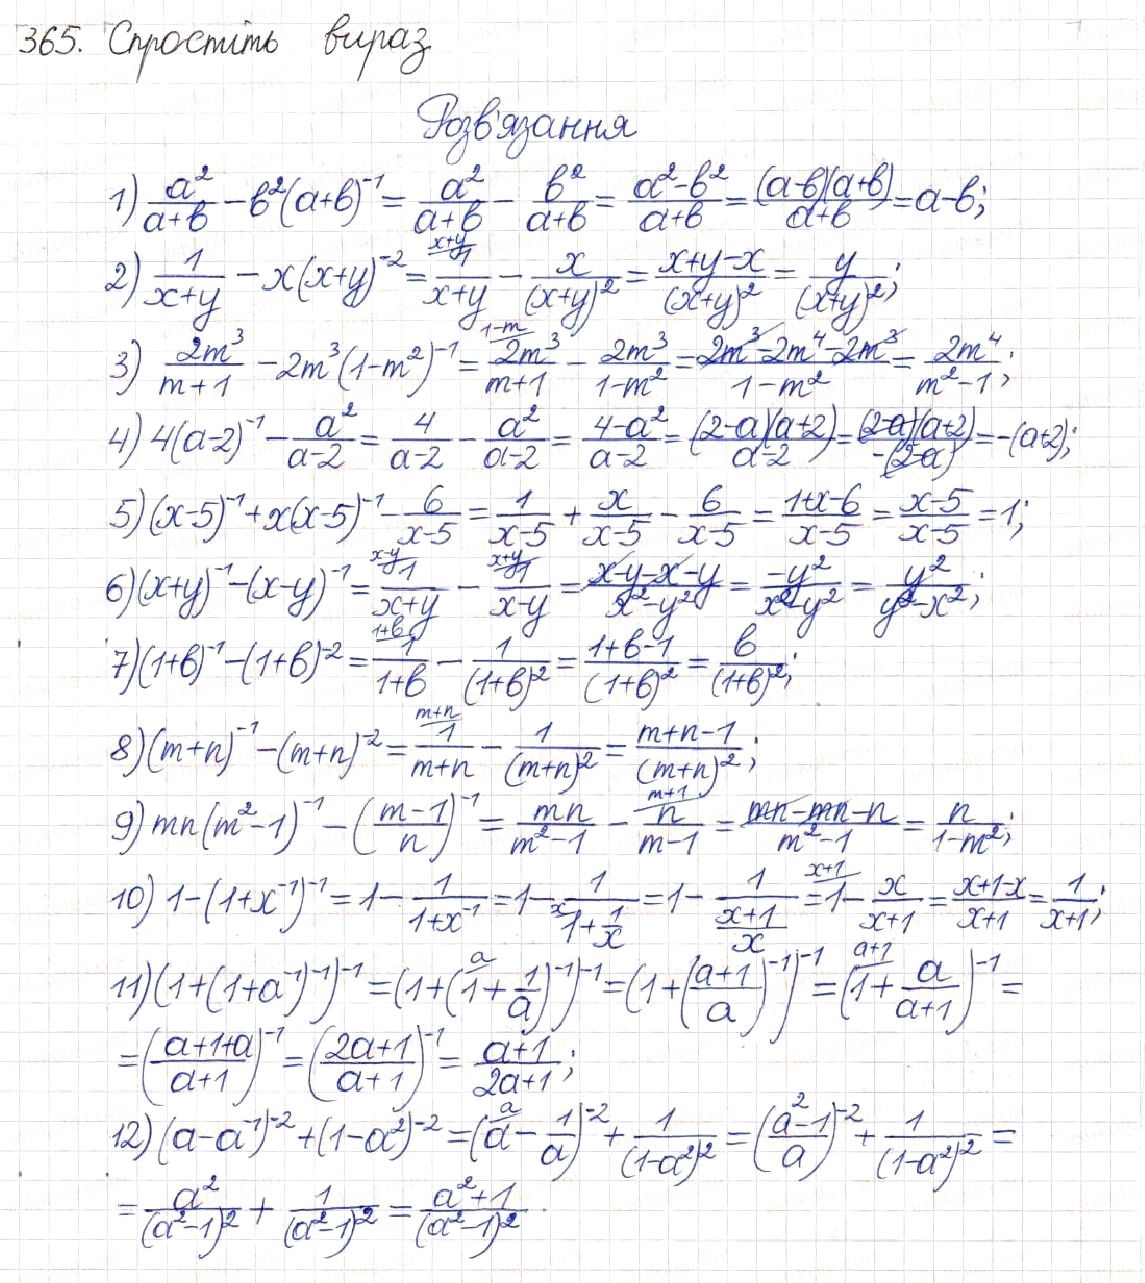 365. Спростіть вираз
Розв'язання
1) \frac{a^2}{a+b} - b^2(a+b)^{-1} = \frac{a^2}{a+b} - \frac{b^2}{a+b} = \frac{a^2-b^2}{a+b} = \frac{(a-b)(a+b)}{a+b} = a-b;
2) \frac{1}{x+y} - x(x+y)^{-2} = \frac{1}{x+y}^{x+y} - \frac{x}{(x+y)^2} = \frac{x+y-x}{(x+y)^2} = \frac{y}{(x+y)^2};
3) \frac{2m^3}{m+1} - 2m^3(1-m^2)^{-1} = \frac{2m^3}{m+1}^{1-m} - \frac{2m^3}{1-m^2} = \frac{2m^3-2m^4-2m^3}{1-m^2} = \frac{2m^4}{m^2-1};
4) 4(a-2)^{-1} - \frac{a^2}{a-2} = \frac{4}{a-2} - \frac{a^2}{a-2} = \frac{4-a^2}{a-2} = \frac{(2-a)(a+2)}{a-2} = \frac{(2-a)(a+2)}{-(2-a)} = -(a+2);
5) (x-5)^{-1} + x(x-5)^{-1} - \frac{6}{x-5} = \frac{1}{x-5} + \frac{x}{x-5} - \frac{6}{x-5} = \frac{1+x-6}{x-5} = \frac{x-5}{x-5} = 1;
6) (x+y)^{-1} - (x-y)^{-1} = \frac{1}{x+y}^{x-y} - \frac{1}{x-y}^{x+y} = \frac{x-y-x-y}{x^2-y^2} = \frac{-y^2}{x^2-y^2} = \frac{y^2}{y^2-x^2};
7) (1+b)^{-1} - (1+b)^{-2} = \frac{1}{1+b}^{1+b} - \frac{1}{(1+b)^2} = \frac{1+b-1}{(1+b)^2} = \frac{b}{(1+b)^2};
8) (m+n)^{-1} - (m+n)^{-2} = \frac{1}{m+n}^{m+n} - \frac{1}{(m+n)^2} = \frac{m+n-1}{(m+n)^2};
9) mn(m^2-1)^{-1} - (\frac{m-1}{n})^{-1} = \frac{mn}{m^2-1} - \frac{n}{m-1}^{m+1} = \frac{mn-mn-n}{m^2-1} = \frac{n}{1-m^2};
10) 1-(1+x^{-1})^{-1} = 1 - \frac{1}{1+x^{-1}} = 1 - \frac{1}{^{x}1+\frac{1}{x}} = 1 - \frac{1}{\frac{x+1}{x}} = 1^{x+1} - \frac{x}{x+1} = \frac{x+1-x}{x+1} = \frac{1}{x+1};
11) (1+(1+a^{-1})^{-1})^{-1} = (1+(1^{a}+\frac{1}{a})^{-1})^{-1} = (1+(\frac{a+1}{a})^{-1})^{-1} = (1^{a+1}+\frac{a}{a+1})^{-1} =
= (\frac{a+1+a}{a+1})^{-1} = (\frac{2a+1}{a+1})^{-1} = \frac{a+1}{2a+1};
12) (a-a^{-1})^{-2} + (1-a^2)^{-2} = (a^{a}-\frac{1}{a})^{-2} + \frac{1}{(1-a^2)^2} = (\frac{a^2-1}{a})^{-2} + \frac{1}{(1-a^2)^2} =
= \frac{a^2}{(a^2-1)^2} + \frac{1}{(a^2-1)^2} = \frac{a^2+1}{(a^2-1)^2}.